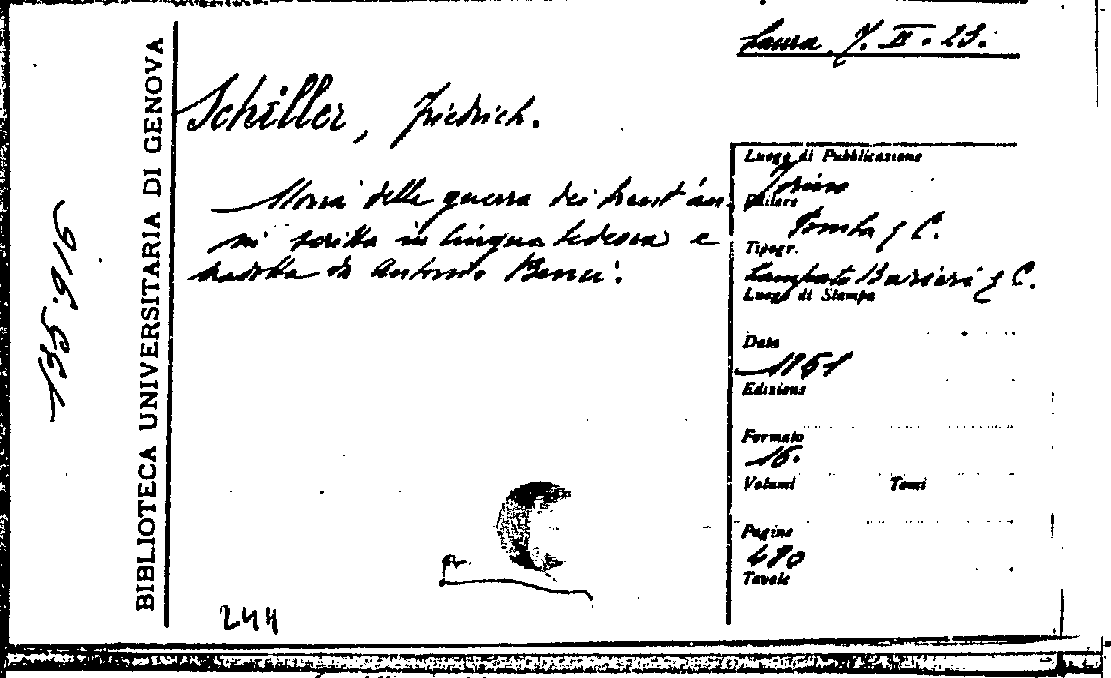 Laura. Y. II. 23.
Schiller, Friedrich.
Storia della guerra dei trent'an-
ni scritta in lingua tedesca e
tradotta da Antonio Benci.
Luogo di Pubblicazione
Torino
Editore
Pomba e C.
Tipogr.
Lampato Barbieri e C.
Luogo di Stampa
Data
1851
Edizione
Formato
16.
Volumi Tomi
Pagine
480
Tavole
BIBLIOTECA UNIVERSITARIA DI GENOVA
135.916
244